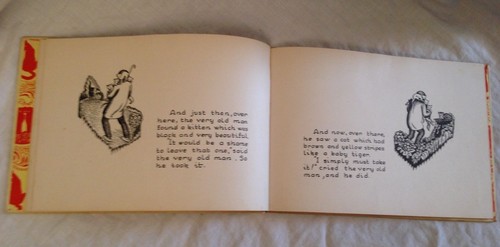 And just then, over
here, the very old man
found a kitten which was
black and very beautiful.
"It would be a shame
to leave that one," said
the very old man. So
he took it.
And now, over there,
he saw a cat which had
brown and yellow stripes
like a baby tiger.
"I simply must take
it!" cried the very old
man, and he did.